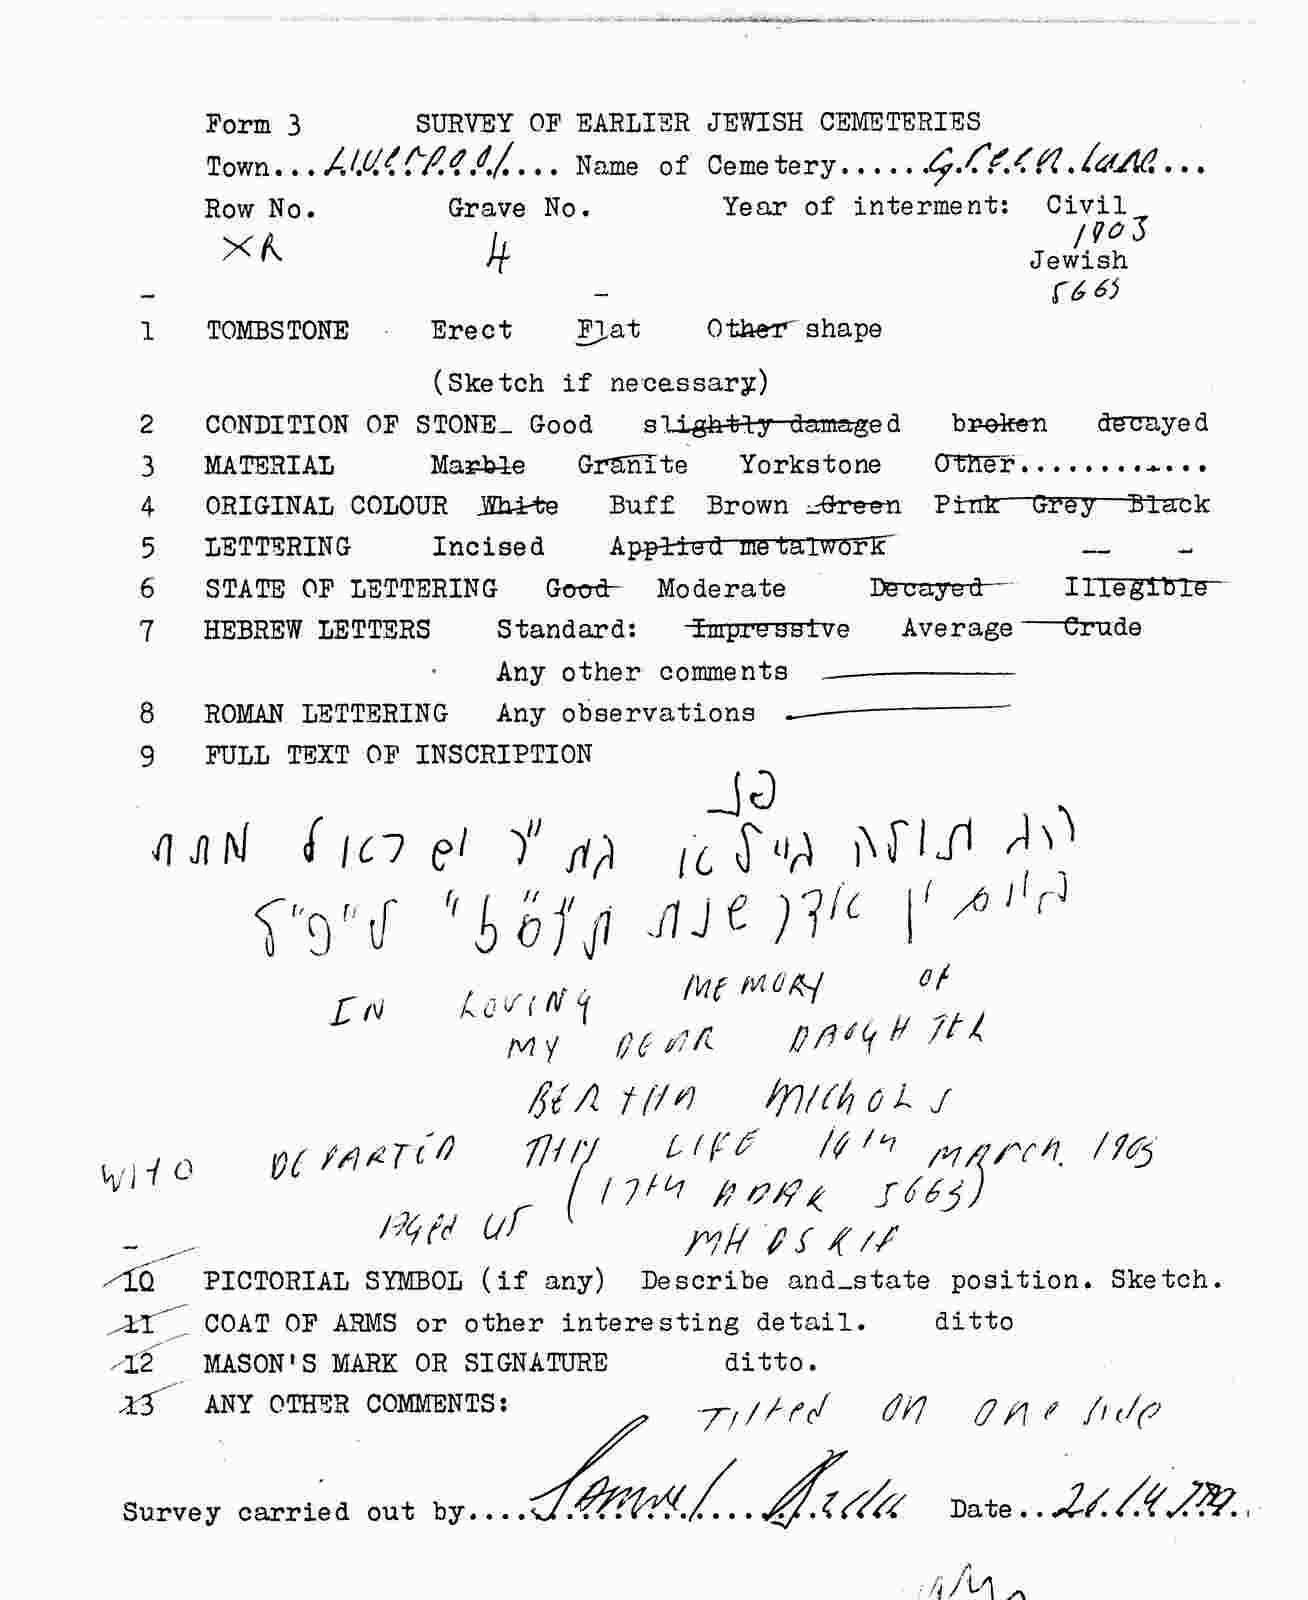 Form 3 SURVEY OF EARLIER JEWISH CEMETERIES
Town...Liverpool.... Name of Cemetery......Green Lane...
Row No. Grave No. Year of interment: Civil
XR 4 1903
Jewish
5663
1 TOMBSTONE Erect Flat Other shape
(Sketch if necessary)
2 CONDITION OF STONE_ Good slightly damaged broken decayed
3 MATERIAL Marble Granite Yorkstone Other............
4 ORIGINAL COLOUR White Buff Brown Green Pink Grey Black
5 LETTERING Incised Applied metalwork
6 STATE OF LETTERING Good Moderate Decayed Illegible
7 HEBREW LETTERS Standard: Impressive Average Crude
Any other comments
8 ROMAN LETTERING Any observations
9 FULL TEXT OF INSCRIPTION
פנ
בת ישראל
אדר שנת לפ"ק
IN LOVING MEMORY OF
MY DEAR DAUGHTER
BERTHA NICHOLS
WHO DEPARTED THIS LIFE MARCH 1903
(17TH ADAR 5663)
AGED
MHDSRIP
10 PICTORIAL SYMBOL (if any) Describe and_state position. Sketch.
11 COAT OF ARMS or other interesting detail. ditto
12 MASON'S MARK OR SIGNATURE ditto.
13 ANY OTHER COMMENTS:
Tilted on one side
Survey carried out by....Samuel Date..